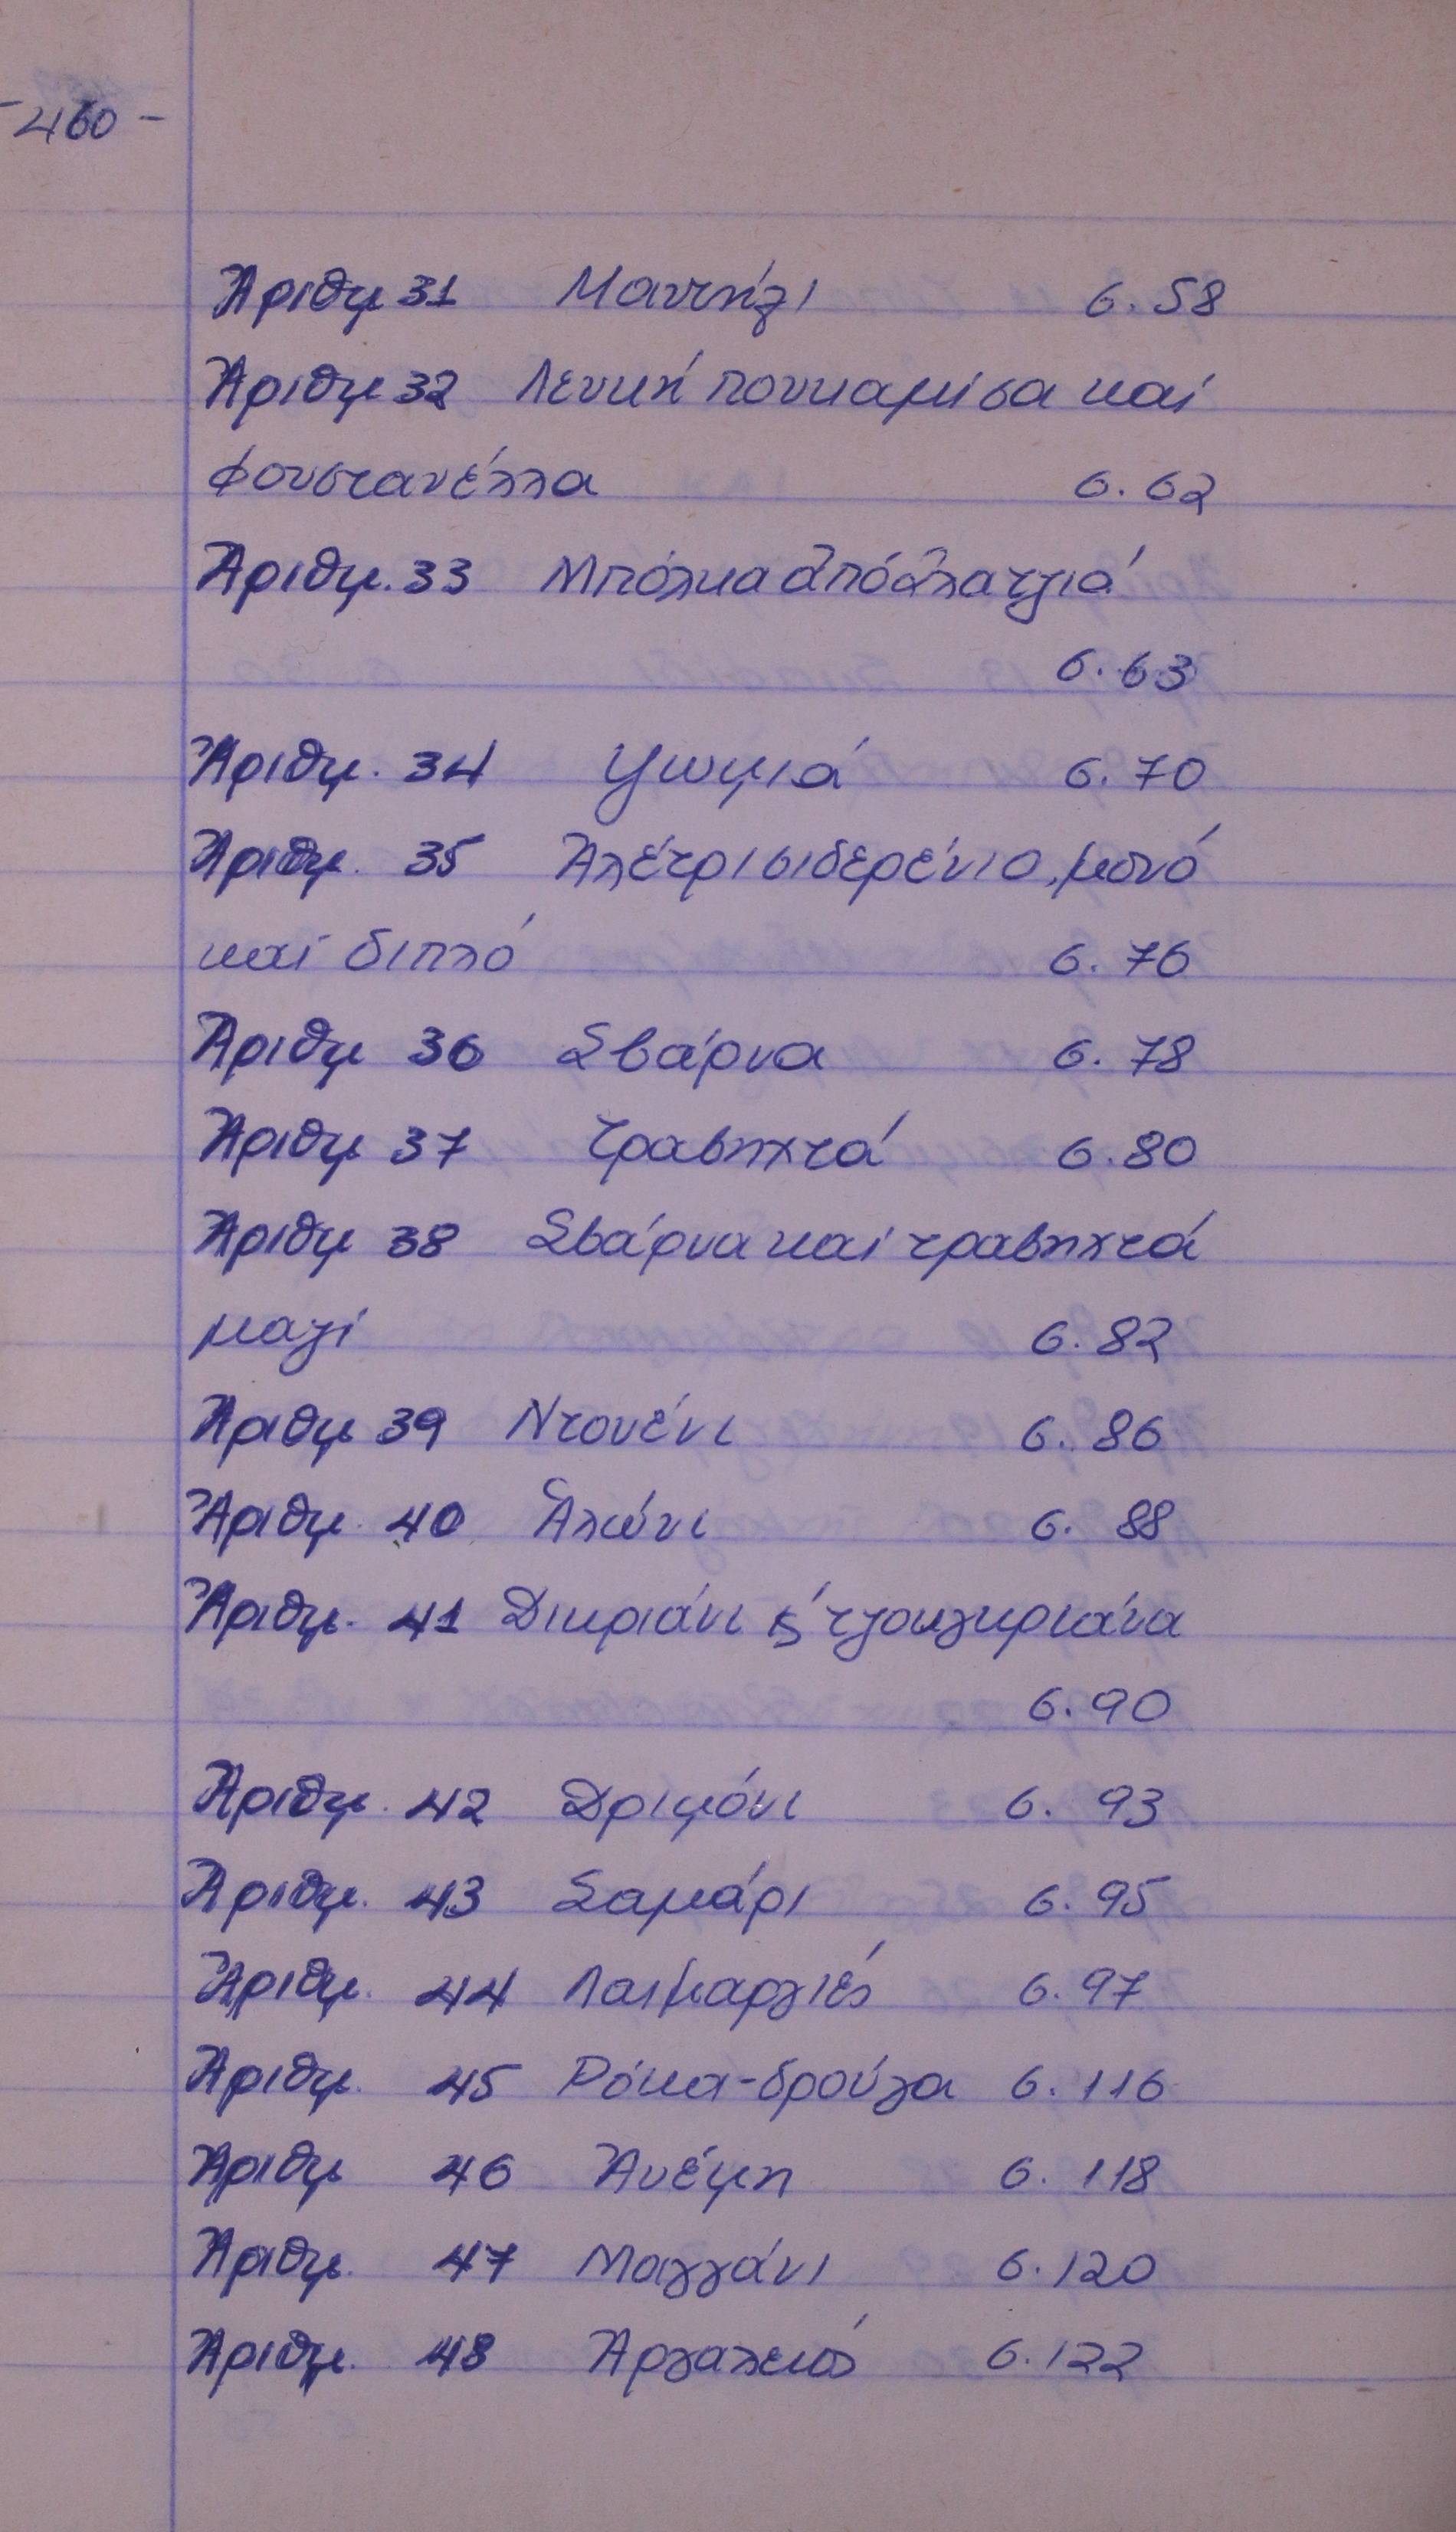 -460-
Ἀριθμ 31 Μαντήλι σ. 58
Ἀριθμ 32 Λευκή πουκαμίσα καί
φουστανέλλα σ. 62
Ἀριθμ. 33 Μπόλκα ἀπό ἀλατζιά
σ. 63
Ἀριθμ. 34 Ψωμιά σ. 70
Ἀριθμ. 35 Ἀλέτρι σιδερένιο, μονό
καί διπλό σ. 76
Ἀριθμ 36 Σβάρνα σ. 78
Ἀριθμ 37 τραβηχτά σ. 80
Ἀριθμ 38 Σβάρνα καί τραβηχτά
μαζί σ. 82
Ἀριθμ 39 Ντουένι σ. 86
Ἀριθμ. 40 Ἁλώνι σ. 88
Ἀριθμ. 41 Δικριάνι ϗ τζουλκριάνα
σ. 90
Ἀριθμ. 42 Δριμόνι σ. 93
Ἀριθμ. 43 Σαμάρι σ. 95
Ἀριθμ. 44 Λαιμαργιές σ. 97
Ἀριθμ. 45 Ρόκα-δρούγα σ. 116
Ἀριθμ 46 Ἀνέμη σ. 118
Ἀριθμ. 47 Μαγγάνι σ. 120
Ἀριθμ. 48 Ἀργαλειός σ. 122